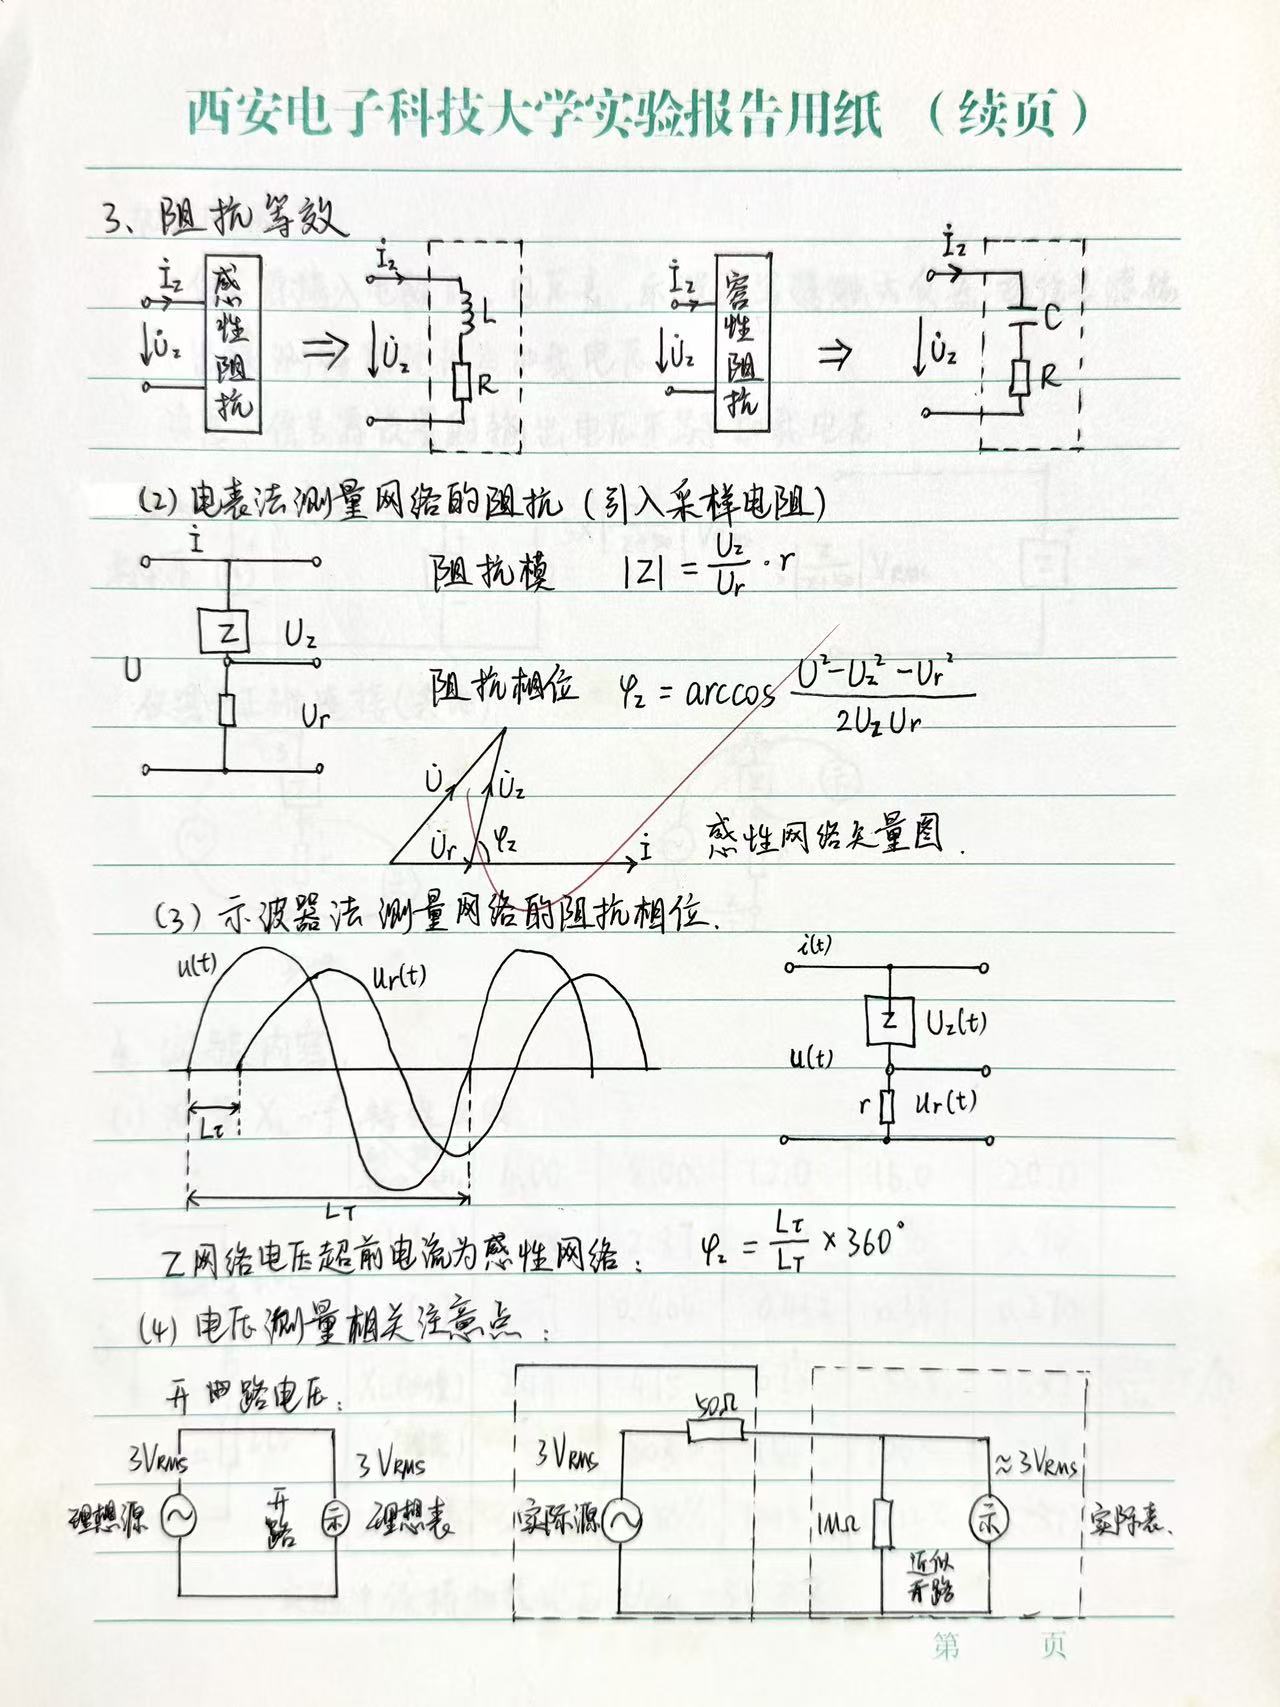 西安电子科技大学实验报告用纸 （续页）
3、阻抗等效
İz 感性阻抗 U̇z ⇒ İz U̇z L R
İz 容性阻抗 U̇z ⇒ İz U̇z C R
(2) 电表法测量网络的阻抗 (引入采样电阻)
İ
Z Uz
U
Ur
阻抗模 |Z| = Uz/Ur · r
阻抗相位 φz = arccos (U²-Uz²-Ur²)/(2UzUr)
U̇ U̇z
U̇r φz İ
感性网络矢量图.
(3) 示波器法测量网络的阻抗相位.
u(t) ur(t)
Lτ
LT
i(t)
Z Uz(t)
u(t)
r ur(t)
Z网络电压超前电流为感性网络: φz = Lτ/LT × 360°
(4) 电压测量相关注意点:
开路电压:
3VRMS 理想源 开路 示 3VRMS 理想表
50Ω
3VRMS 实际源 1MΩ 近似开路 示 ≈3VRMS 实际表.
第 页